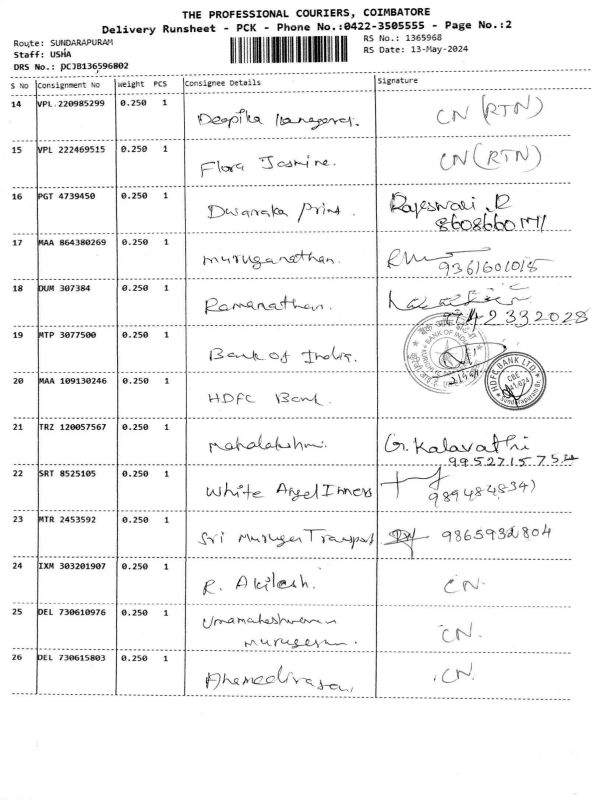 THE PROFESSIONAL COURIERS, COIMBATORE
Delivery Runsheet - PCK - Phone No.:0422-3505555 - Page No.:2
Route: SUNDARAPURAM
RS No.: 1365968
Staff: USHA
RS Date: 13-May-2024
DRS No.: PCJB136596802
S No Consignment No Weight PCS Consignee Details Signature
14 VPL 220985299 0.250 1 Deepika CN (RTN)
15 VPL 222469515 0.250 1 Flora Jasmine. CN (RTN)
16 PGT 4739450 0.250 1 Dwaraka Print. Rajeswari .R
8608660171
17 MAA 864380269 0.250 1 Muruganathan. 9361601015
18 DUM 307384 0.250 1 Ramanathan.
9742332028
19 MTP 3077500 0.250 1 Bank of India. BANK OF INDIA
20 MAA 109130246 0.250 1 HDFC Bank. HDFC BANK LTD. CBE Sundarapuram Br.
21 TRZ 120057567 0.250 1 Mahalakshmi. G. Kalavathri
9952715754
22 SRT 8525105 0.250 1 White Angel Inners 9894848341
23 MTR 2453592 0.250 1 Sri Murugan Transport 9865932804
24 IXM 303201907 0.250 1 R. Akilesh. CN.
25 DEL 730610976 0.250 1 Umamaheshwaran CN.
Murugesan.
26 DEL 730615803 0.250 1 CN.